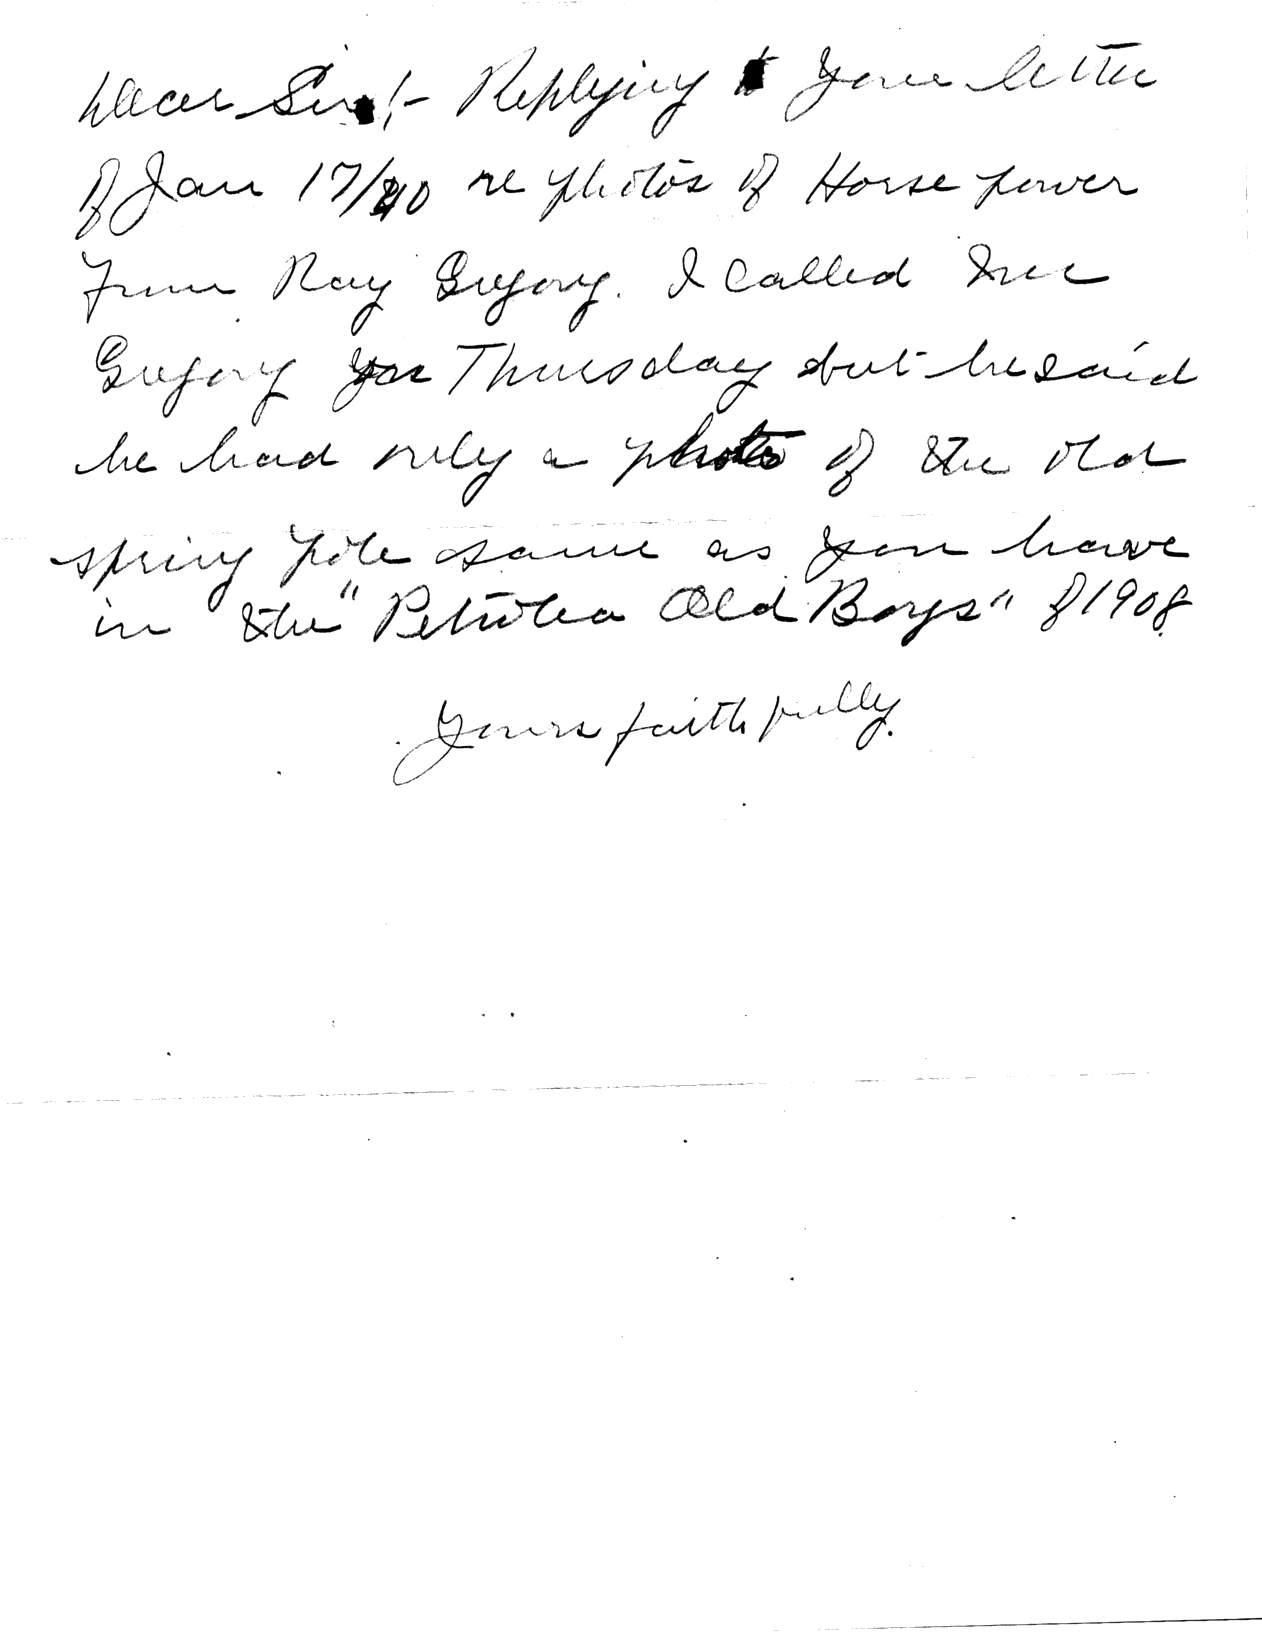 Dear Sir:- Replying to your letter
of Jan 17/40 re photos of Horse power
from Ray Gregory. I called
Gregory Thursday but he said
he had only a photo of the old
spring pole same as you have
in the "Petrolea Old Boys" of 1908
Yours faithfully.